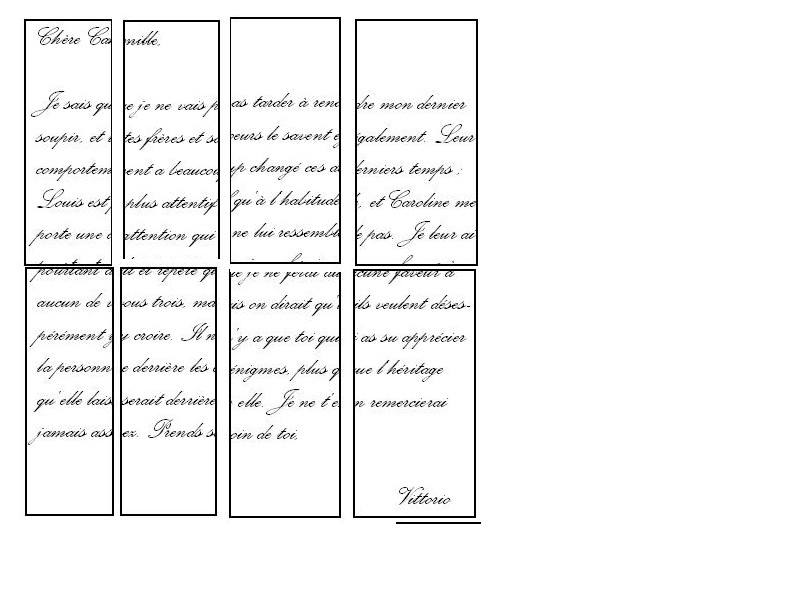 Chère Camille,
Je sais que je ne vais pas tarder à rendre mon dernier
soupir, et tes frères et soeurs le savent également. Leur
comportement a beaucoup changé ces derniers temps ;
Louis est plus attentif qu'à l'habitude, et Caroline me
porte une attention qui ne lui ressemble pas. Je leur ai
pourtant dit et répété que je ne ferai aucune faveur à
aucun de vous trois, mais on dirait qu'ils veulent déses-
pérément y croire. Il n'y a que toi qui as su apprécier
la personne derrière les énigmes, plus que l'héritage
qu'elle laisserait derrière elle. Je ne t'en remercierai
jamais assez. Prends soin de toi,
Vittorio